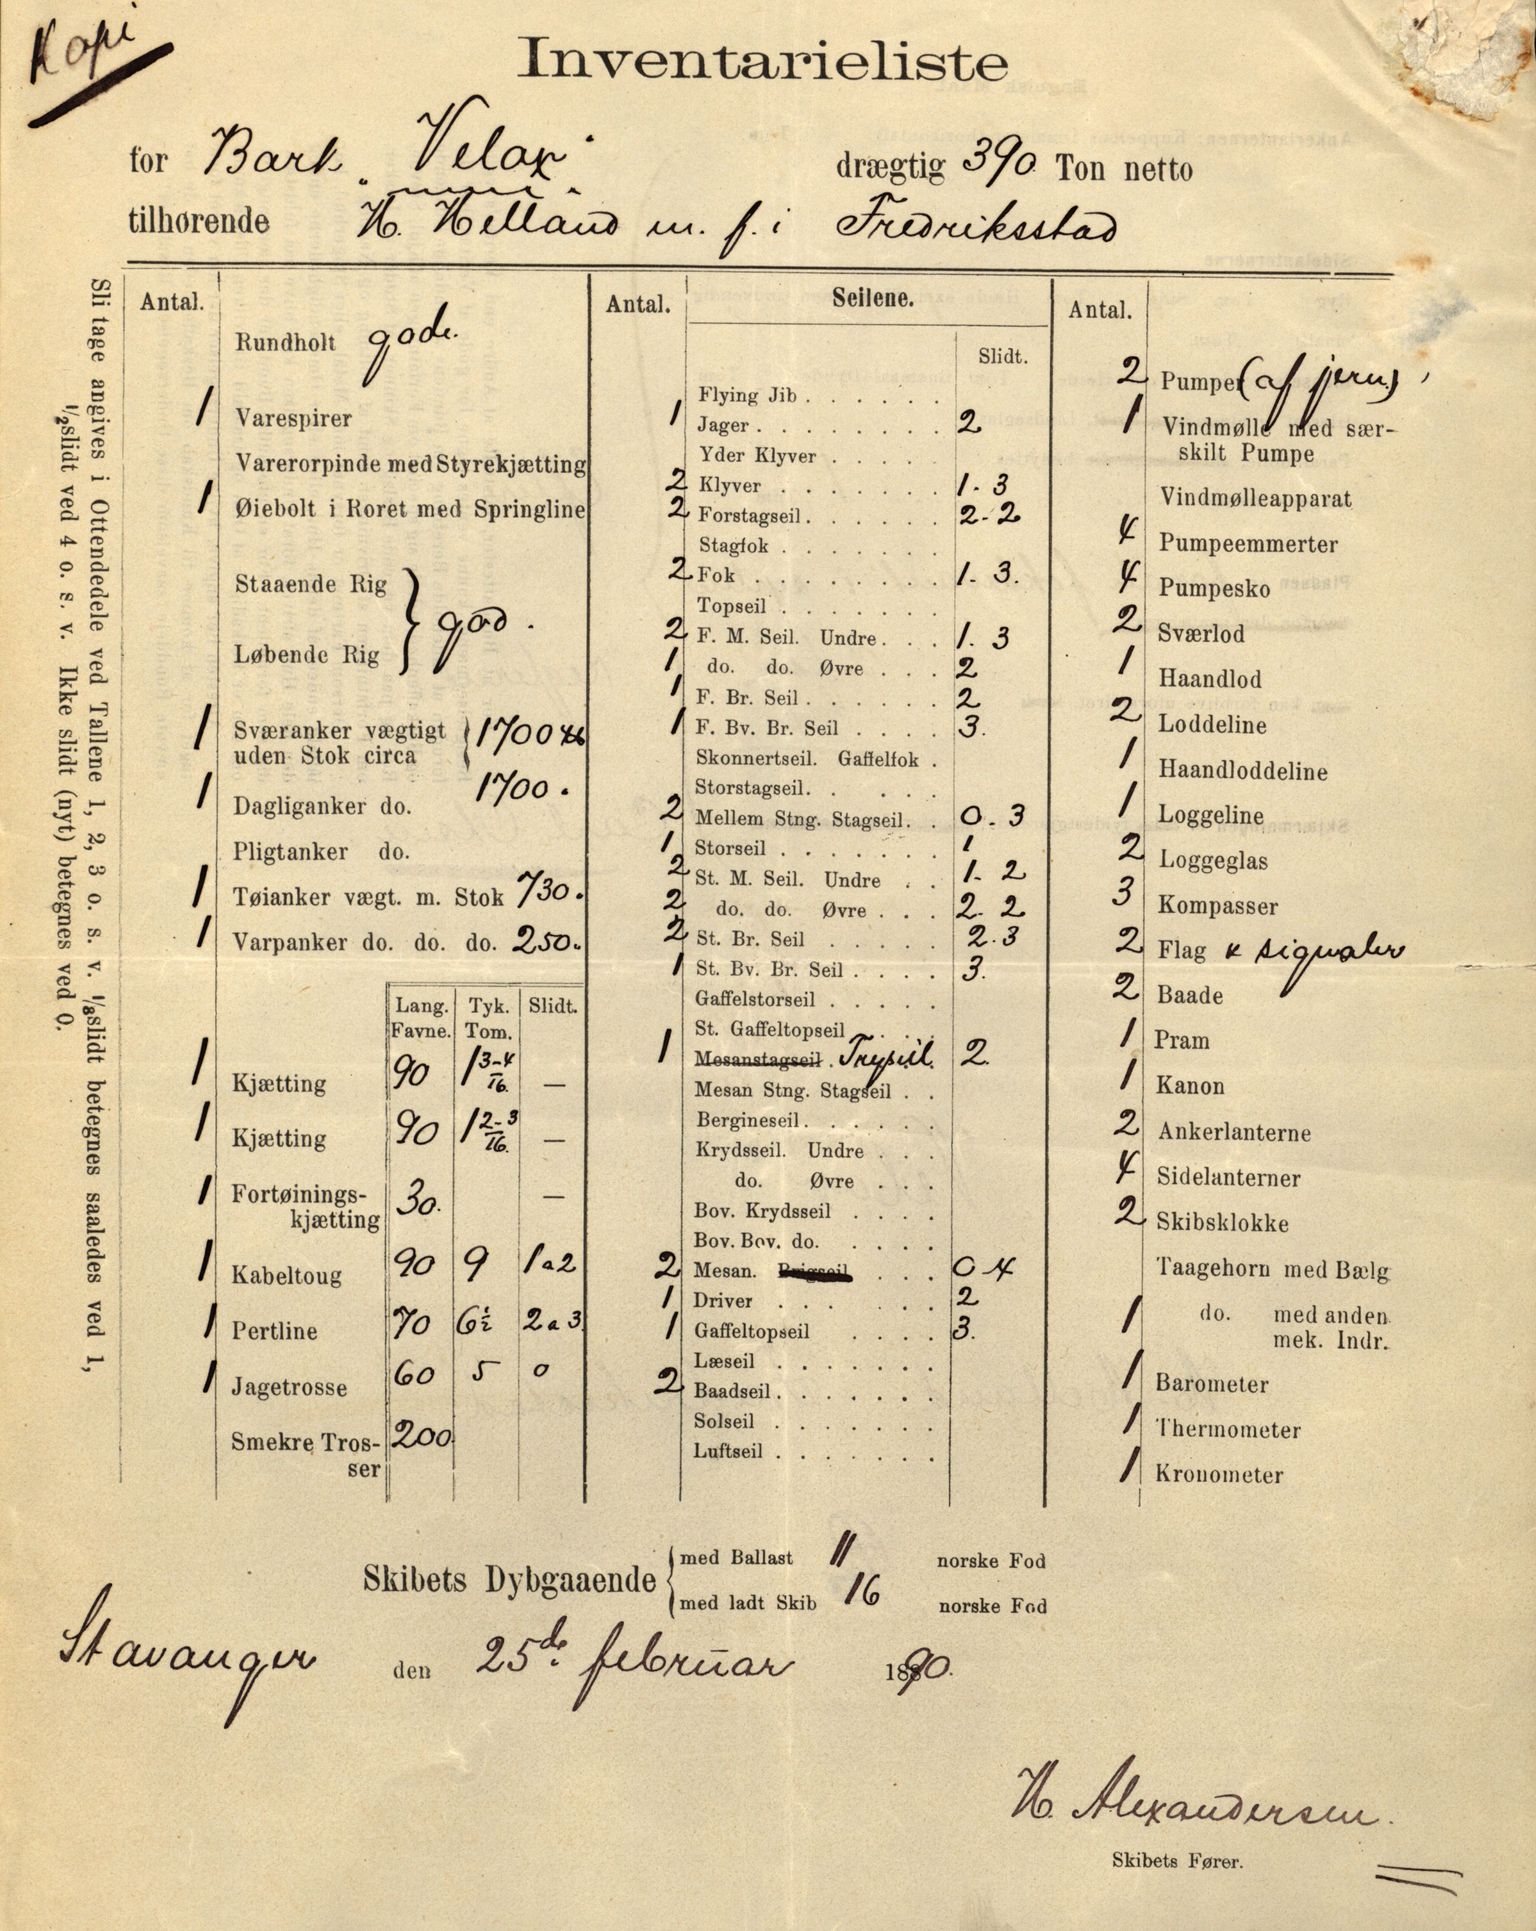 Kopi
Inventarieliste
for Bark „Velox“ drægtig 390 Ton netto
tilhørende H. Helland m. f. i Fredriksstad
Sli tage angives i Ottendedele ved Tallene 1, 2, 3 o. s. v. 1/8 slidt betegnes saaledes ved 1,
1/2 slidt ved 4 o. s. v. Ikke slidt (nyt) betegnes ved 0.
Antal.
Rundholt gode.
1 Varespirer
Varerorpinde med Styrekjætting
1 Øiebolt i Roret med Springline
Staaende Rig
Løbende Rig } god.
1 Sværanker vægtigt
uden Stok circa { 1700 ℔
1 Dagliganker do. 1700.
Pligtanker do.
1 Tøianker vægt. m. Stok 730.
1 Varpanker do. do. do. 250.
Lang. Favne. Tyk. Tom. Slidt.
1 Kjætting 90 1 3-4/16. —
1 Kjætting 90 1 2-3/16. —
1 Fortøinings-
kjætting 30. —
1 Kabeltoug 90 9 1 a 2
1 Pertline 70 6½ 2 a 3.
1 Jagetrosse 60 5 0
Smekre Tros-
ser 200
Antal. Seilene.
Slidt.
Flying Jib . . . . . .
1 Jager . . . . . . . . 2
Yder Klyver . . . . .
2 Klyver . . . . . . . 1. 3
2 Forstagseil . . . . . . 2. 2
Stagfok . . . . . . .
2 Fok . . . . . . . . 1. 3.
Topseil . . . . . . .
2 F. M. Seil. Undre . . . 1. 3
1 do. do. Øvre . . . 2
1 F. Br. Seil . . . . . . 2
1 F. Bv. Br. Seil . . . . 3.
Skonnertseil. Gaffelfok .
Storstagseil . . . . .
2 Mellem Stng. Stagseil . . 0. 3
1 Storseil . . . . . . . 1
2 St. M. Seil. Undre . . 1. 2
2 do. do. Øvre . . . 2. 2
2 St. Br. Seil . . . . . 2. 3
1 St. Bv. Br. Seil . . . . 3.
Gaffelstorseil . . . . .
St. Gaffeltopseil . . .
1 Mesanstagseil . Tryseil. 2.
Mesan Stng. Stagseil . .
Bergineseil . . . . . .
Krydsseil. Undre . . .
do. Øvre . . .
Bov. Krydsseil . . . .
Bov. Bov. do. . . . .
2 Mesan. Brigseil . . . 0 4
1 Driver . . . . . . 2
1 Gaffeltopseil . . . . 3.
Læseil . . . . . . .
2 Baadseil . . . . . . .
Solseil . . . . . . .
Luftseil . . . . . . .
Antal.
2 Pumper (af jern)
1 Vindmølle med sær-
skilt Pumpe
Vindmølleapparat
4 Pumpeemmerter
4 Pumpesko
2 Sværlod
1 Haandlod
2 Loddeline
1 Haandloddeline
1 Loggeline
2 Loggeglas
3 Kompasser
2 Flag & signaler
2 Baade
1 Pram
1 Kanon
2 Ankerlanterne
4 Sidelanterner
2 Skibsklokke
Taagehorn med Bælg
1 do. med anden
mek. Indr.
1 Barometer
1 Thermometer
1 Kronometer
Skibets Dybgaaende { med Ballast 11 norske Fod
med ladt Skib 16 norske Fod
Stavanger den 25de februar 1890.
H. Alexandersen.
Skibets Fører.